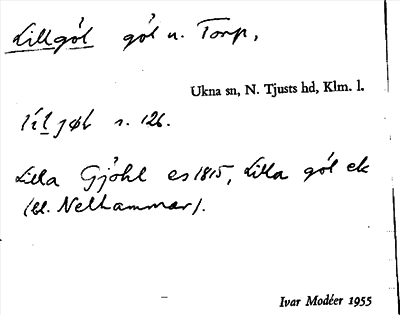 Lillgöl göl u. Torp,
Ukna sn, N. Tjusts hd, Klm. l.
líl jøl s. 126.
Lilla Gjöhl es 1815, Lilla göl ek
(bl. Nelhammar).
Ivar Modéer 1955